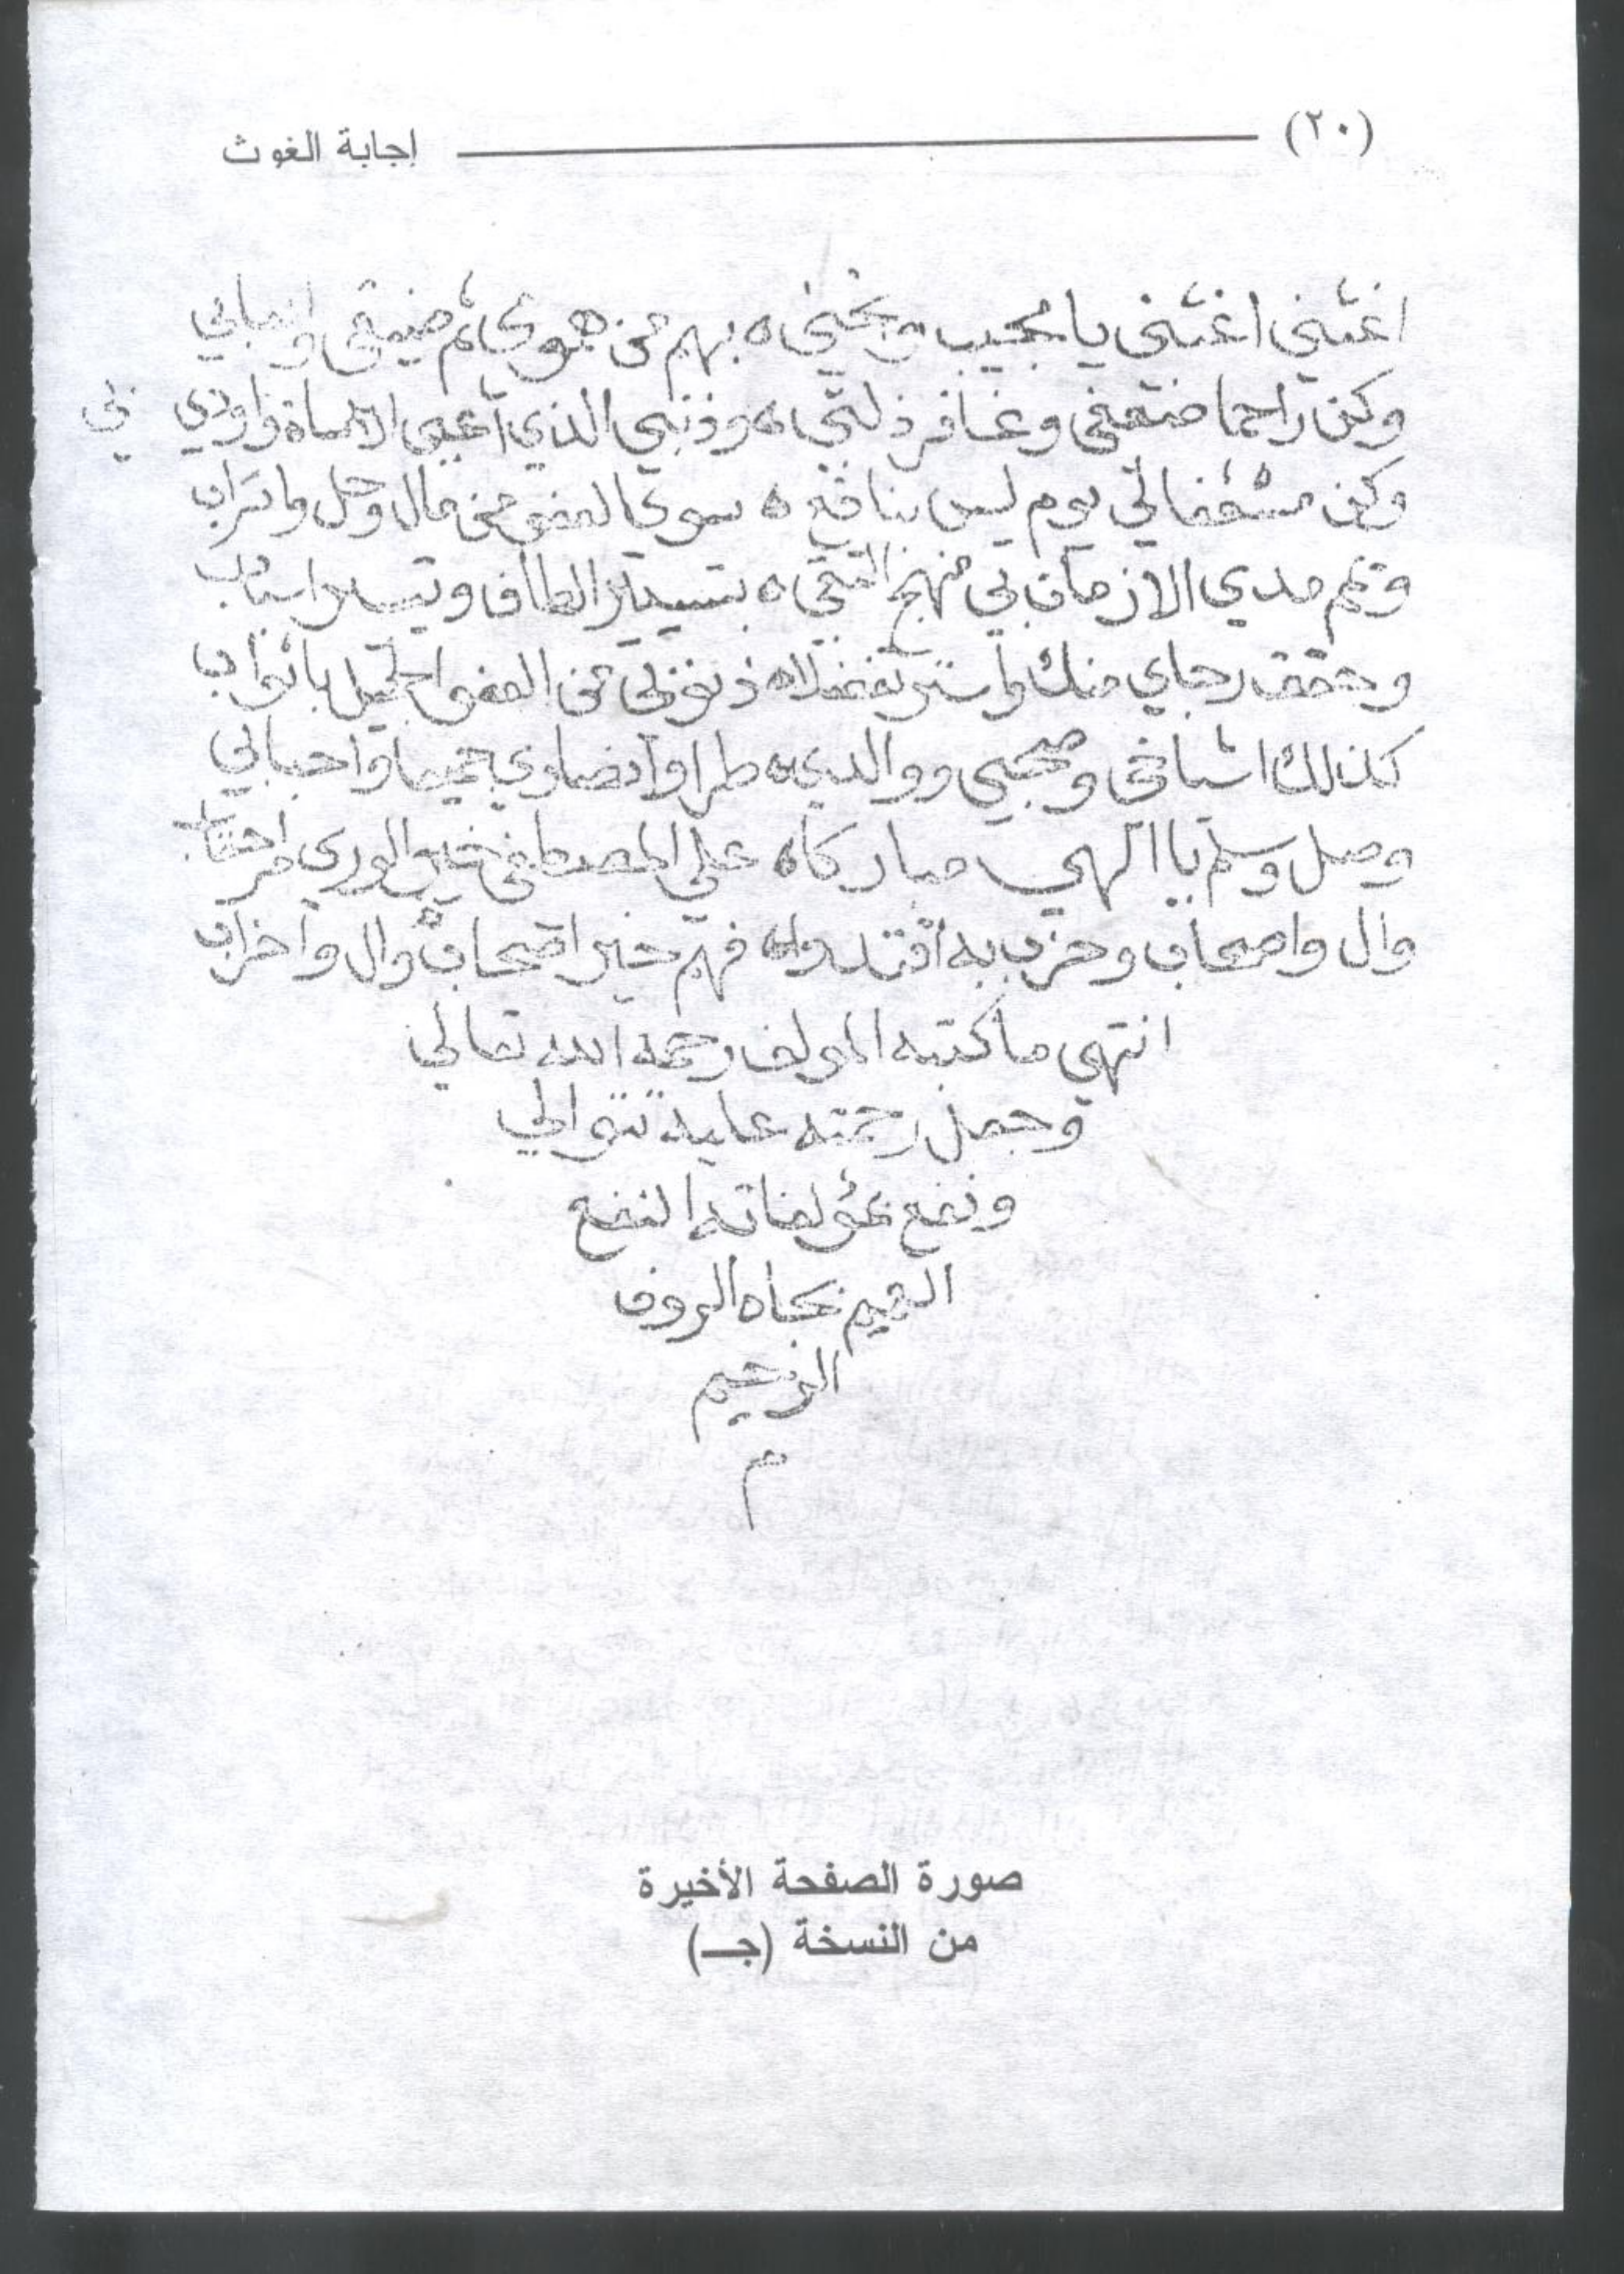 (٢٠) إجابة الغوث
اغثني اغثني يا مجيب ونجني ه بهم من هوى ثم ضيقي
وكن راحما ضعفي وغافر ذلتي ه وذنبي الذي أعيى الاساة واودي بي
وكن مشفقا لي يوم ليس بنافع ه سوى العفو من مال وحل واتراب
وقم مدي الازمان بي منهج التقى ه بتسيير الطاف وتيسير اسباب
وحقق رجاي منك واستر تفضلا ه ذنوبي من العفو الجميل باثواب
كذلك اشياخي وصحبي ووالدي ه طرا وانصاري جميعا واحبابي
وصل وسلم يا الهي مباركا ه على المصطفى خير الورى
وال واصحاب وحزب به اقتدوا ه فهم خير اصحاب وال واحزاب
انتهى ما كتبه المولف رحمه الله تعالي
وجعل رحمته عليه تتوالي
ونفع بمؤلفاته النفع
العميم بجاه الروف
الرحيم
م
صورة الصفحة الأخيرة
من النسخة (جـ)